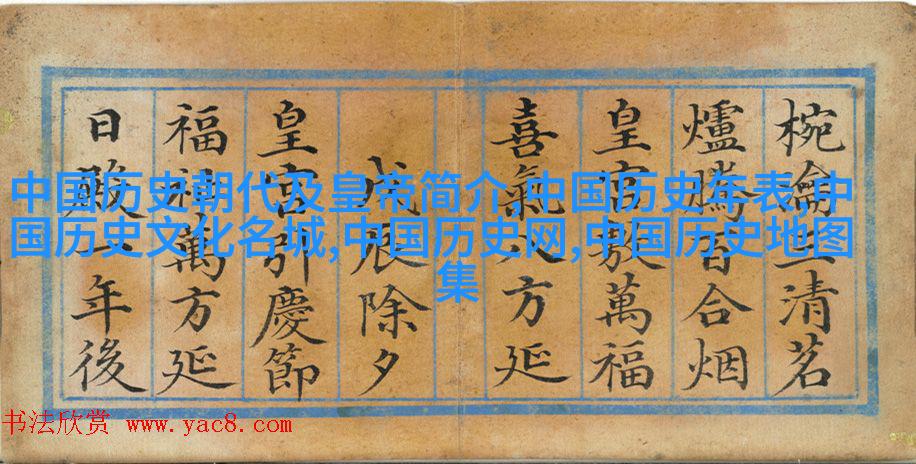 椀三清茗
爐騰百合烟
皇帝敷萬福
喜氣八方延
戊辰除夕
皇宮引慶節
福萬方延
日一年後
中国历史朝代及皇帝简介,中国历史年表,中
国历史文化名城,中国历史网,中国历史地图
集
书法欣赏 www.yac8.com